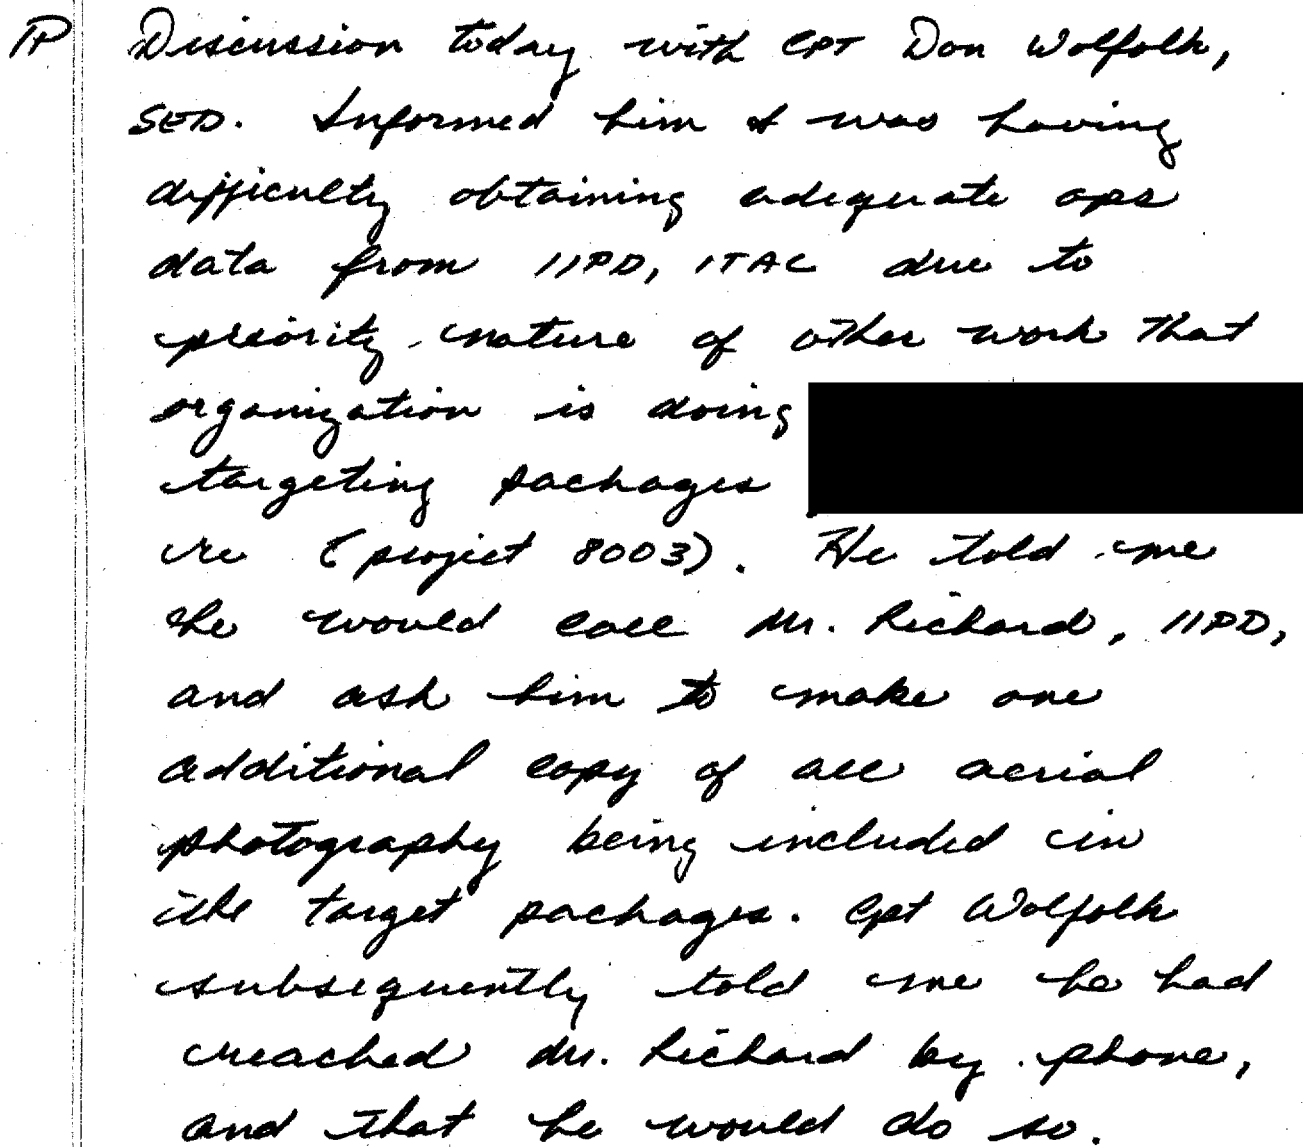 IP Discussion today with CPT Don Wolfolk,
SED. Informed him I was having
difficulty obtaining adequate ops
data from IIPD, ITAC due to
priority nature of other work that
organization is doing
targeting packages
re (project 8003). He told me
he would call Mr. Richard, IIPD,
and ask him to make one
additional copy of all aerial
photography being included in
the target packages. Cpt Wolfolk
subsequently told me he had
reached Mr. Richard by phone,
and that he would do so.